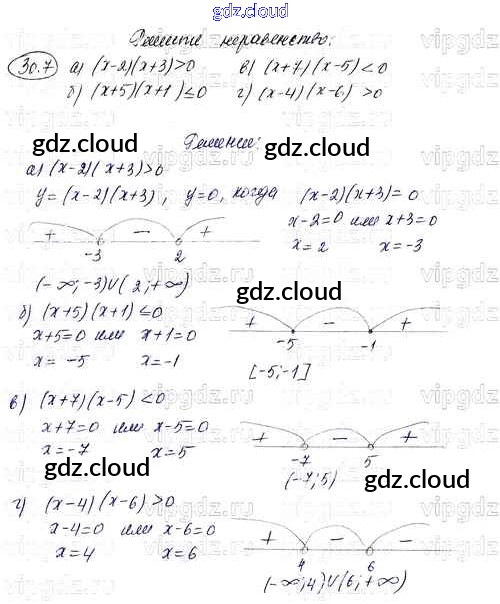 gdz.cloud
Решите неравенство:
30.7 а) (x-2)(x+3)>0 в) (x+7)(x-5)<0
б) (x+5)(x+1)≤0 г) (x-4)(x-6)>0
Решение:
gdz.cloud gdz.cloud
а) (x-2)(x+3)>0
y=(x-2)(x+3), y=0, когда (x-2)(x+3)=0
x-2=0 или x+3=0
x=2 x=-3
+ - +
-3 2
(-∞;-3)∪(2;+∞)
gdz.cloud
б) (x+5)(x+1)≤0
x+5=0 или x+1=0
x=-5 x=-1
+ - +
-5 -1
[-5;-1]
gdz.cloud
в) (x+7)(x-5)<0
x+7=0 или x-5=0
x=-7 x=5
+ - +
-7 5
(-7;5)
gdz.cloud gdz.cloud
г) (x-4)(x-6)>0
x-4=0 или x-6=0
x=4 x=6
+ - +
4 6
(-∞;4)∪(6;+∞)